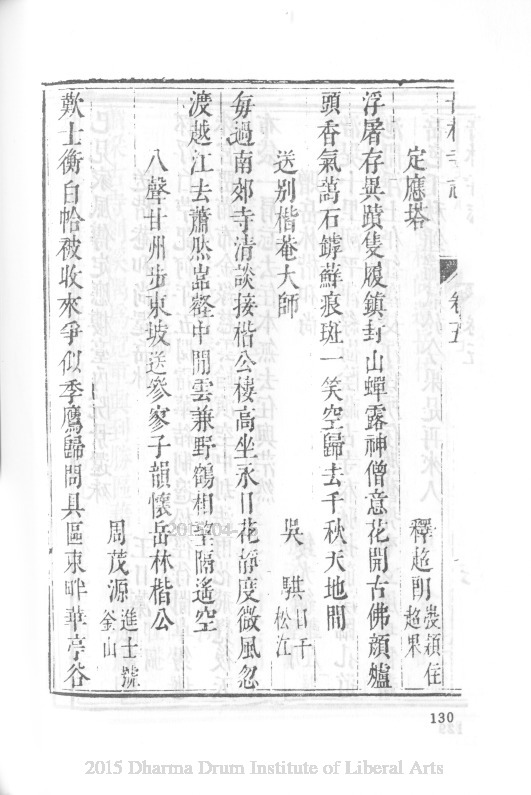 林寺志 卷五
定應塔 釋超 穎住超果
浮屠存異蹟隻履鎮封山蟬露神僧意花開古佛顏爐
頭香氣藹石罅蘚痕斑一笑空歸去千秋天地間
送別楷菴大師 吳騏 日千松江
每過南郊寺清談接楷公棲高坐永日花靜度微風忽
渡越江去蕭然嵓壑中閒雲兼野鶴相望隔遙空
八聲甘州步東坡送參寥子韻懷岳林楷公
周茂源 進士號釜山
歎士衡白帢被收來爭似季鷹歸問具區東畔華亭谷
130
2015 Dharma Drum Institute of Liberal Arts